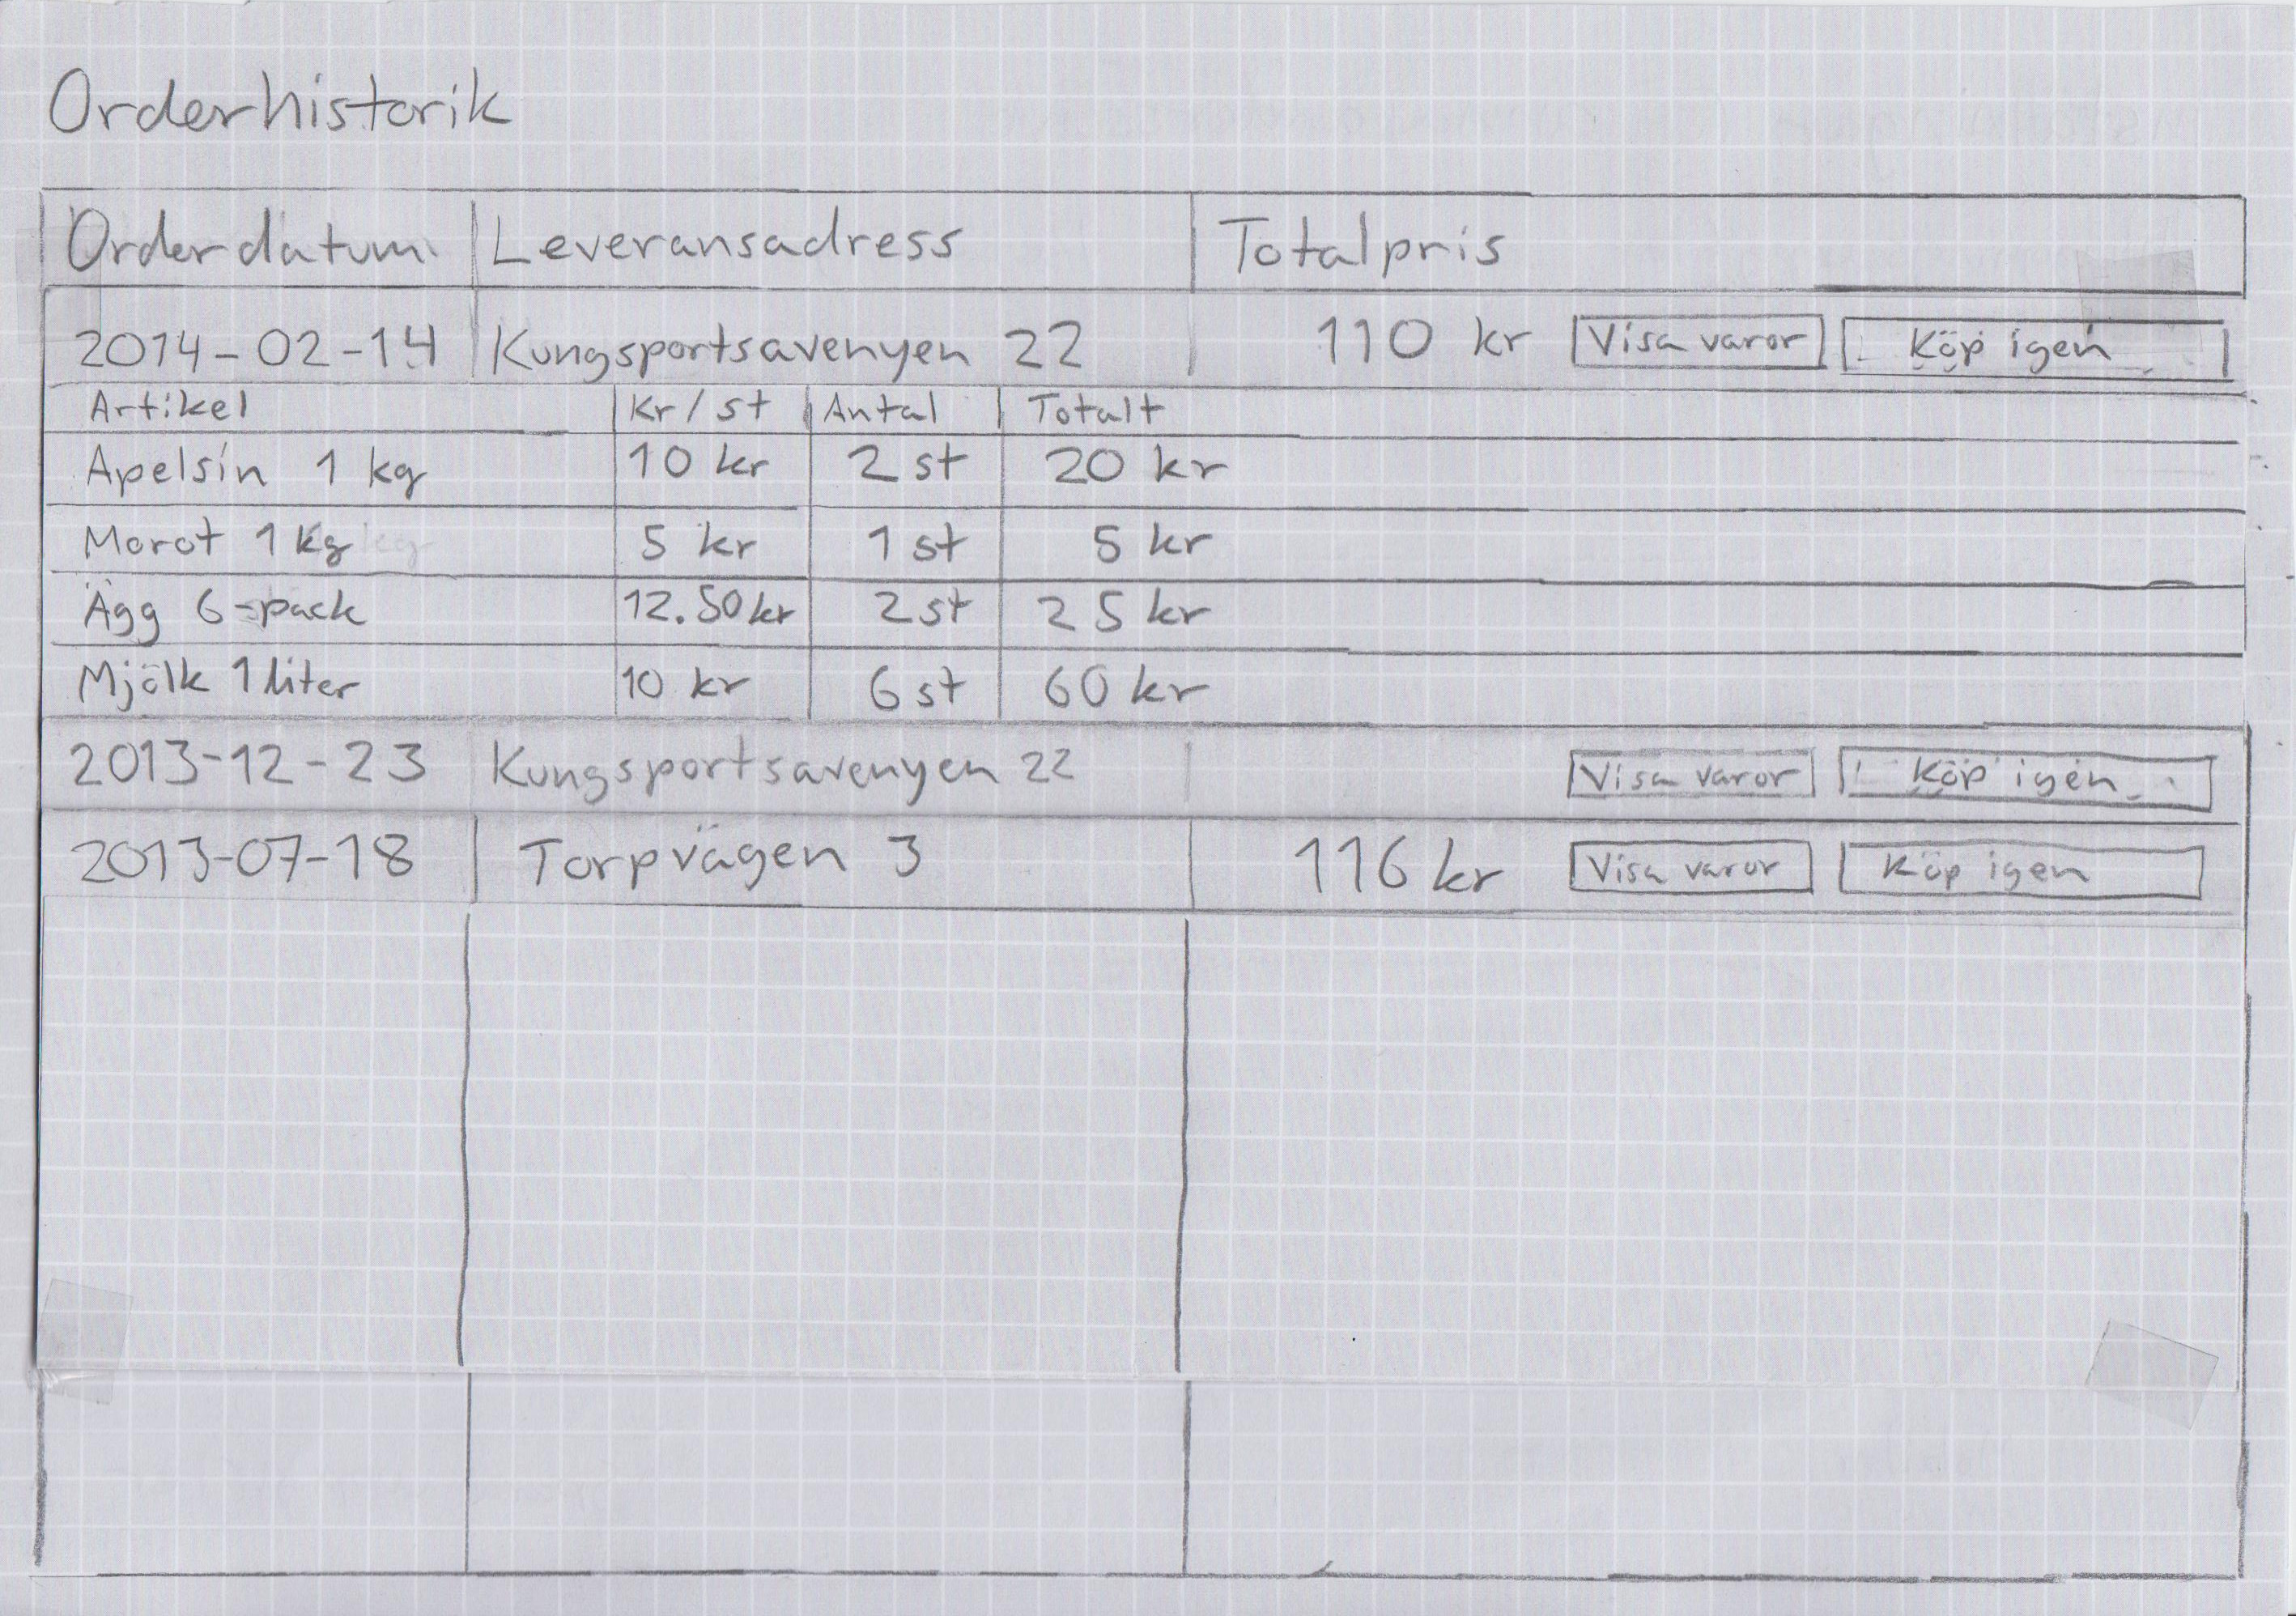 Orderhistorik
Orderdatum Leveransadress Totalpris
2014-02-14 Kungsportsavenyen 22 110 kr Visa varor Köp igen
Artikel Kr/st Antal Totalt
Apelsin 1 kg 10 kr 2 st 20 kr
Morot 1 kg 5 kr 1 st 5 kr
Ägg 6-pack 12.50 kr 2 st 25 kr
Mjölk 1 liter 10 kr 6 st 60 kr
2013-12-23 Kungsportsavenyen 22 Visa varor Köp igen
2013-07-18 Torpvägen 3 116 kr Visa varor Köp igen